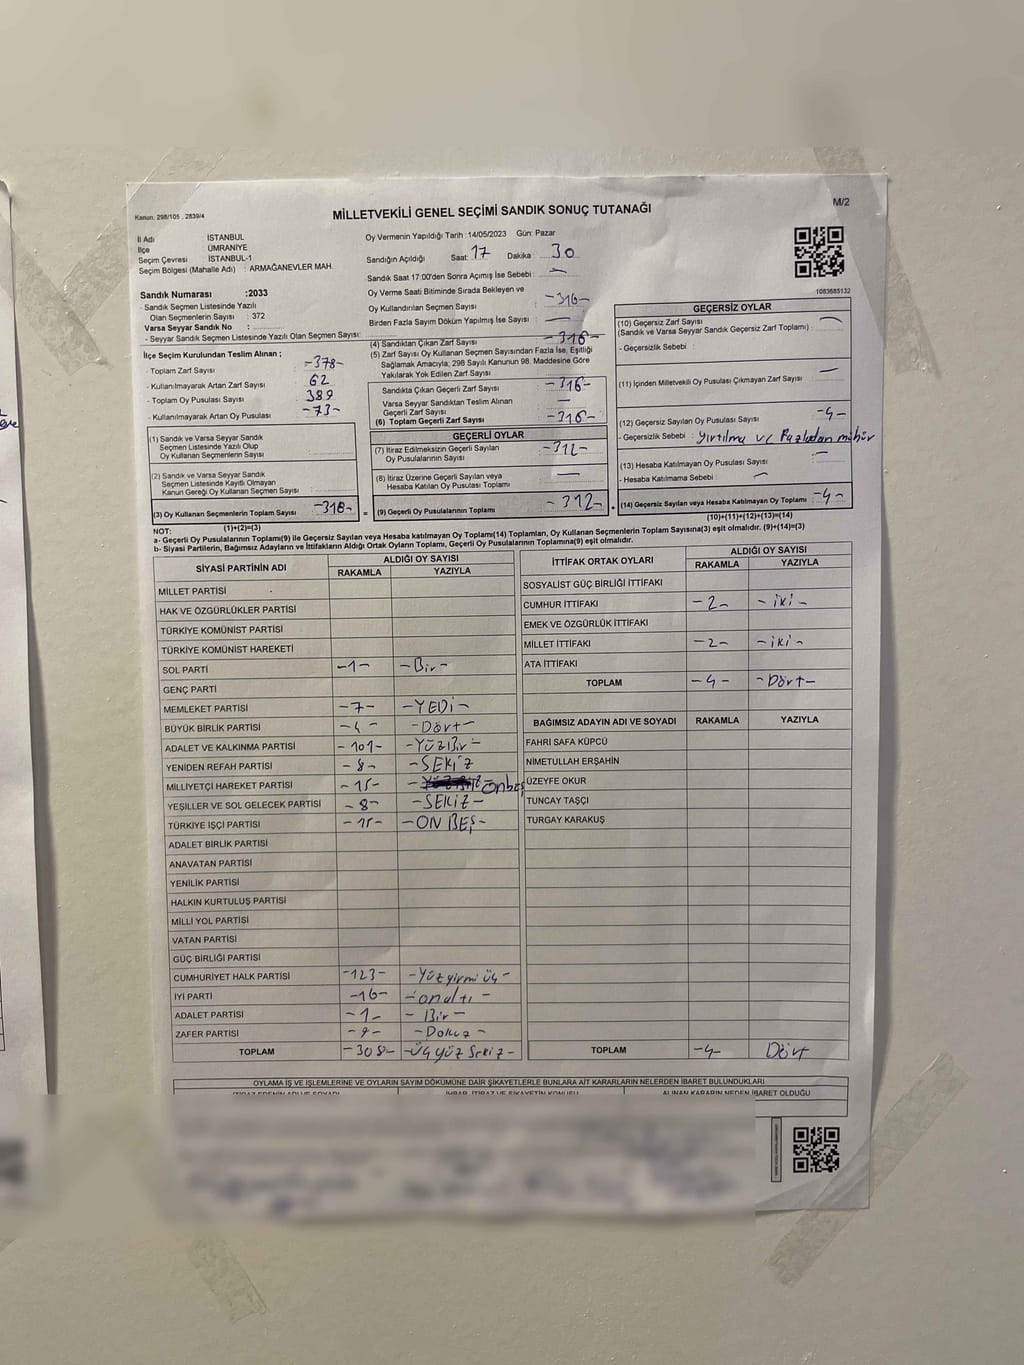 Kanun, 298/105 , 2839/4
MİLLETVEKİLİ GENEL SEÇİMİ SANDIK SONUÇ TUTANAĞI
M/2
İl Adı : İSTANBUL
İlçe : ÜMRANİYE
Seçim Çevresi : İSTANBUL-1
Seçim Bölgesi (Mahalle Adı) : ARMAĞANEVLER MAH.
Sandık Numarası :2033
- Sandık Seçmen Listesinde Yazılı
Olan Seçmenlerin Sayısı : 372
Varsa Seyyar Sandık No :
- Seyyar Sandık Seçmen Listesinde Yazılı Olan Seçmen Sayısı:
İlçe Seçim Kurulundan Teslim Alınan ;
- Toplam Zarf Sayısı : -378-
- Kullanılmayarak Artan Zarf Sayısı : 62
- Toplam Oy Pusulası Sayısı : 389
- Kullanılmayarak Artan Oy Pusulası : -73-
(1) Sandık ve Varsa Seyyar Sandık
Seçmen Listesinde Yazılı Olup
Oy Kullanan Seçmenlerin Sayısı :
(2) Sandık ve Varsa Seyyar Sandık
Seçmen Listesinde Kayıtlı Olmayan
Kanun Gereği Oy Kullanan Seçmen Sayısı :
(3) Oy Kullanan Seçmenlerin Toplam Sayısı -316-
(1)+(2)=(3)
Oy Vermenin Yapıldığı Tarih : 14/05/2023 Gün: Pazar
Sandığın Açıldığı Saat: 17 Dakika : 30
Sandık Saat 17:00'den Sonra Açımış İse Sebebi : —
Oy Verme Saati Bitiminde Sırada Bekleyen ve
Oy Kullandırılan Seçmen Sayısı : -316-
Birden Fazla Sayım Döküm Yapılmış İse Sayısı : —
(4) Sandıktan Çıkan Zarf Sayısı : -316-
(5) Zarf Sayısı Oy Kullanan Seçmen Sayısından Fazla İse, Eşitliği
Sağlamak Amacıyla; 298 Sayılı Kanunun 98. Maddesine Göre
Yakılarak Yok Edilen Zarf Sayısı :
Sandıkta Çıkan Geçerli Zarf Sayısı : -316-
Varsa Seyyar Sandıktan Teslim Alınan
Geçerli Zarf Sayısı : —
(6) Toplam Geçerli Zarf Sayısı : -316-
GEÇERLİ OYLAR
(7) İtiraz Edilmeksizin Geçerli Sayılan
Oy Pusulalarının Sayısı : -312-
(8) İtiraz Üzerine Geçerli Sayılan veya
Hesaba Katılan Oy Pusulası Toplamı : —
(9) Geçerli Oy Pusulalarının Toplamı : -312-
1083685132
GEÇERSİZ OYLAR
(10) Geçersiz Zarf Sayısı
(Sandık ve Varsa Seyyar Sandık Geçersiz Zarf Toplamı) : —
- Geçersizlik Sebebi :
(11) İçinden Milletvekili Oy Pusulası Çıkmayan Zarf Sayısı : —
(12) Geçersiz Sayılan Oy Pusulası Sayısı : -4-
- Geçersizlik Sebebi : Yırtılma ve Fazladan mühür
(13) Hesaba Katılmayan Oy Pusulası Sayısı : —
- Hesaba Katılmama Sebebi : —
(14) Geçersiz Sayılan veya Hesaba Katılmayan Oy Toplamı -4-
(10)+(11)+(12)+(13)=(14)
NOT:
a- Geçerli Oy Pusulalarının Toplamı(9) ile Geçersiz Sayılan veya Hesaba katılmayan Oy Toplamı(14) Toplamları, Oy Kullanan Seçmenlerin Toplam Sayısına(3) eşit olmalıdır. (9)+(14)=(3)
b- Siyasi Partilerin, Bağımsız Adayların ve İttifakların Aldığı Ortak Oyların Toplamı, Geçerli Oy Pusulalarının Toplamına(9) eşit olmalıdır.
SİYASİ PARTİNİN ADI ALDIĞI OY SAYISI
RAKAMLA YAZIYLA
MİLLET PARTİSİ
HAK VE ÖZGÜRLÜKLER PARTİSİ
TÜRKİYE KOMÜNİST PARTİSİ
TÜRKİYE KOMÜNİST HAREKETİ
SOL PARTİ -1- -Bir-
GENÇ PARTİ
MEMLEKET PARTİSİ -7- -YEDİ-
BÜYÜK BİRLİK PARTİSİ -4- -Dört-
ADALET VE KALKINMA PARTİSİ -101- -YüzBir-
YENİDEN REFAH PARTİSİ -8- -SEKİZ
MİLLİYETÇİ HAREKET PARTİSİ -15- -Onbeş
YEŞİLLER VE SOL GELECEK PARTİSİ -8- -SEKİZ-
TÜRKİYE İŞÇİ PARTİSİ -15- -ON BEŞ-
ADALET BİRLİK PARTİSİ
ANAVATAN PARTİSİ
YENİLİK PARTİSİ
HALKIN KURTULUŞ PARTİSİ
MİLLİ YOL PARTİSİ
VATAN PARTİSİ
GÜÇ BİRLİĞİ PARTİSİ
CUMHURİYET HALK PARTİSİ -123- -Yüzyirmi üç-
İYİ PARTİ -16- -onaltı-
ADALET PARTİSİ -1- -Bir-
ZAFER PARTİSİ -9- -Dokuz-
TOPLAM -308- -Üçyüz Sekiz-
İTTİFAK ORTAK OYLARI ALDIĞI OY SAYISI
RAKAMLA YAZIYLA
SOSYALİST GÜÇ BİRLİĞİ İTTİFAKI
CUMHUR İTTİFAKI -2- -iki-
EMEK VE ÖZGÜRLÜK İTTİFAKI
MİLLET İTTİFAKI -2- -iki-
ATA İTTİFAKI
TOPLAM -4- -Dört-
BAĞIMSIZ ADAYIN ADI VE SOYADI RAKAMLA YAZIYLA
FAHRİ SAFA KÜPCÜ
NİMETULLAH ERŞAHİN
ÜZEYFE OKUR
TUNCAY TAŞÇI
TURGAY KARAKUŞ
TOPLAM -4- Dört
OYLAMA İŞ VE İŞLEMLERİNE VE OYLARIN SAYIM DÖKÜMÜNE DAİR ŞİKAYETLERLE BUNLARA AİT KARARLARIN NELERDEN İBARET BULUNDUKLARI
İTİRAZ EDENİN ADI VE SOYADI İHBAR, İTİRAZ VE ŞİKAYETİN KONUSU ALINAN KARARIN NEDEN İBARET OLDUĞU